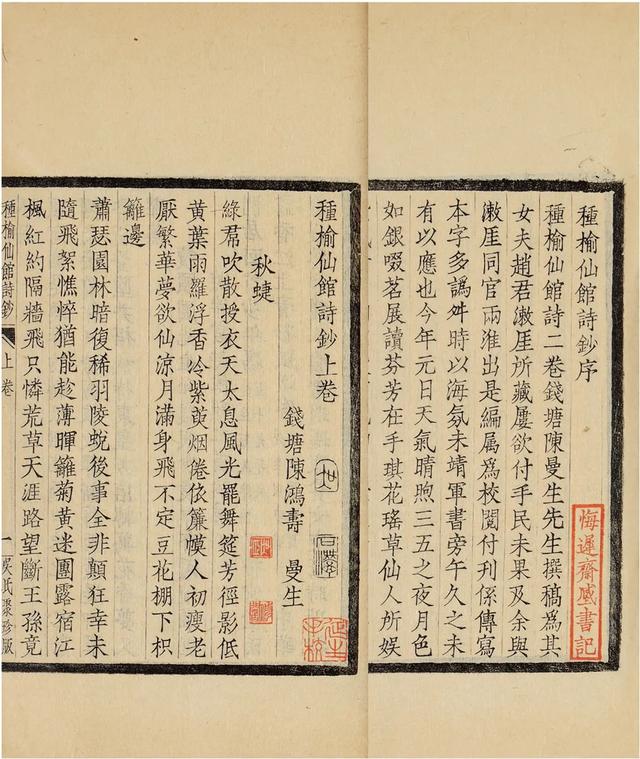 種榆仙館詩鈔序
種榆仙館詩二卷錢塘陳曼生先生撰稿為其
女夫趙君潄厓所藏屢欲付手民未果及余與
潄厓同官兩淮出是編属為校閱付刊係傳寫
本字多譌舛時以海氛未靖軍書旁午久之未
有以應也今年元日天氣晴煦三五之夜月色
如銀啜茗展讀芬芳在手琪花瑤草仙人所娱
悔遲齋藏書記
種榆仙館詩鈔上卷
錢塘陳鴻壽 曼生
秋蜨
綠帬吹散授衣天太息風光罷舞筵芳徑影低
黃葉雨羅浮香冷紫萸烟倦依簾幙人初瘦老
厭繁華夢欲仙涼月滿身飛不定豆花棚下枳
籬邊
蕭瑟園林暗復稀羽陵蛻後事全非顛狂幸未
隨飛絮憔悴猶能趁薄暉籬菊黃迷團露宿江
楓紅約隔牆飛只憐荒草天涯路望斷王孫竟
種榆仙館詩鈔 上卷 一 吳氏聚珍版